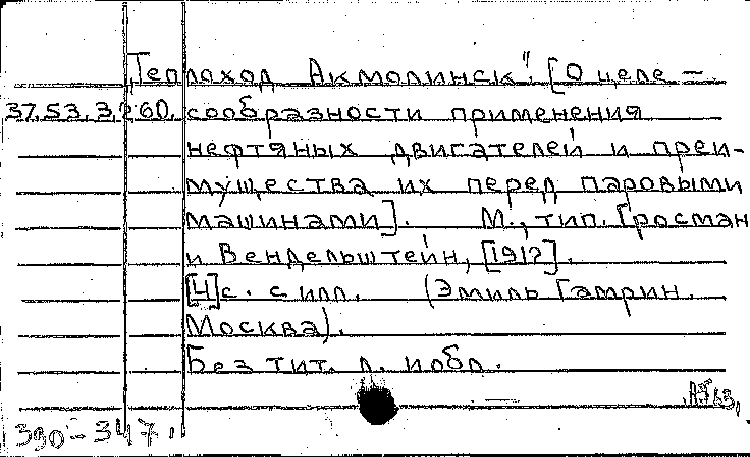 „Теплоход Акмолинск". [О целе-
37.53.3,260. сообразности применения
нефтяных двигателей и преи-
мущества их перед паровыми
машинами]. М., тип. Гросман
и Вендельштейн, [191?].
[4]с. с илл. (Эмиль Гамрин.
Москва).
Без тит. л. и обл.
390-347.